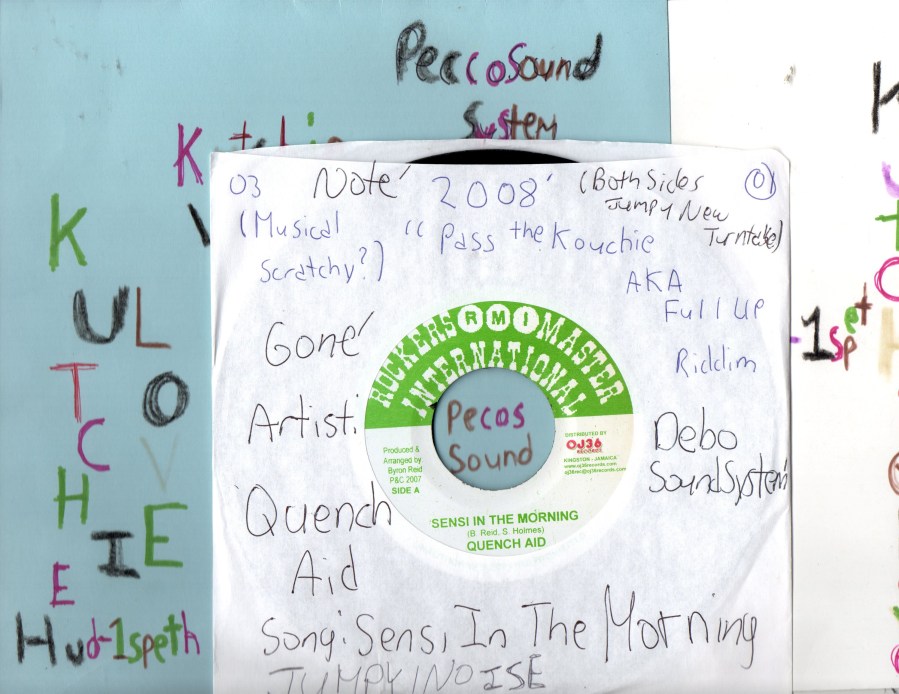 PeccoSound
System
K
U L
T O
C V
H I E
E
Hud-1speth
03 Note' 2008' (Both Sides
Jumpy New
Turntable)
(Musical
Scratchy?)
"Pass the Kouchie
AKA
Full Up
Riddim
Gone'
Artist:
Quench
Aid
Debo
SoundSystem
ROCKERS RMI MASTER
INTERNATIONAL
Pecos
Sound
Produced &
Arranged by
Byron Reid
P&C 2007
SIDE A
DISTRIBUTED BY
OJ36
RECORDS
KINGSTON - JAMAICA
www.oj36records.com
SENSI IN THE MORNING
(B. Reid, S. Holmes)
QUENCH AID
Song: Sensi In The Morning
JUMPY NOISE
-1spet